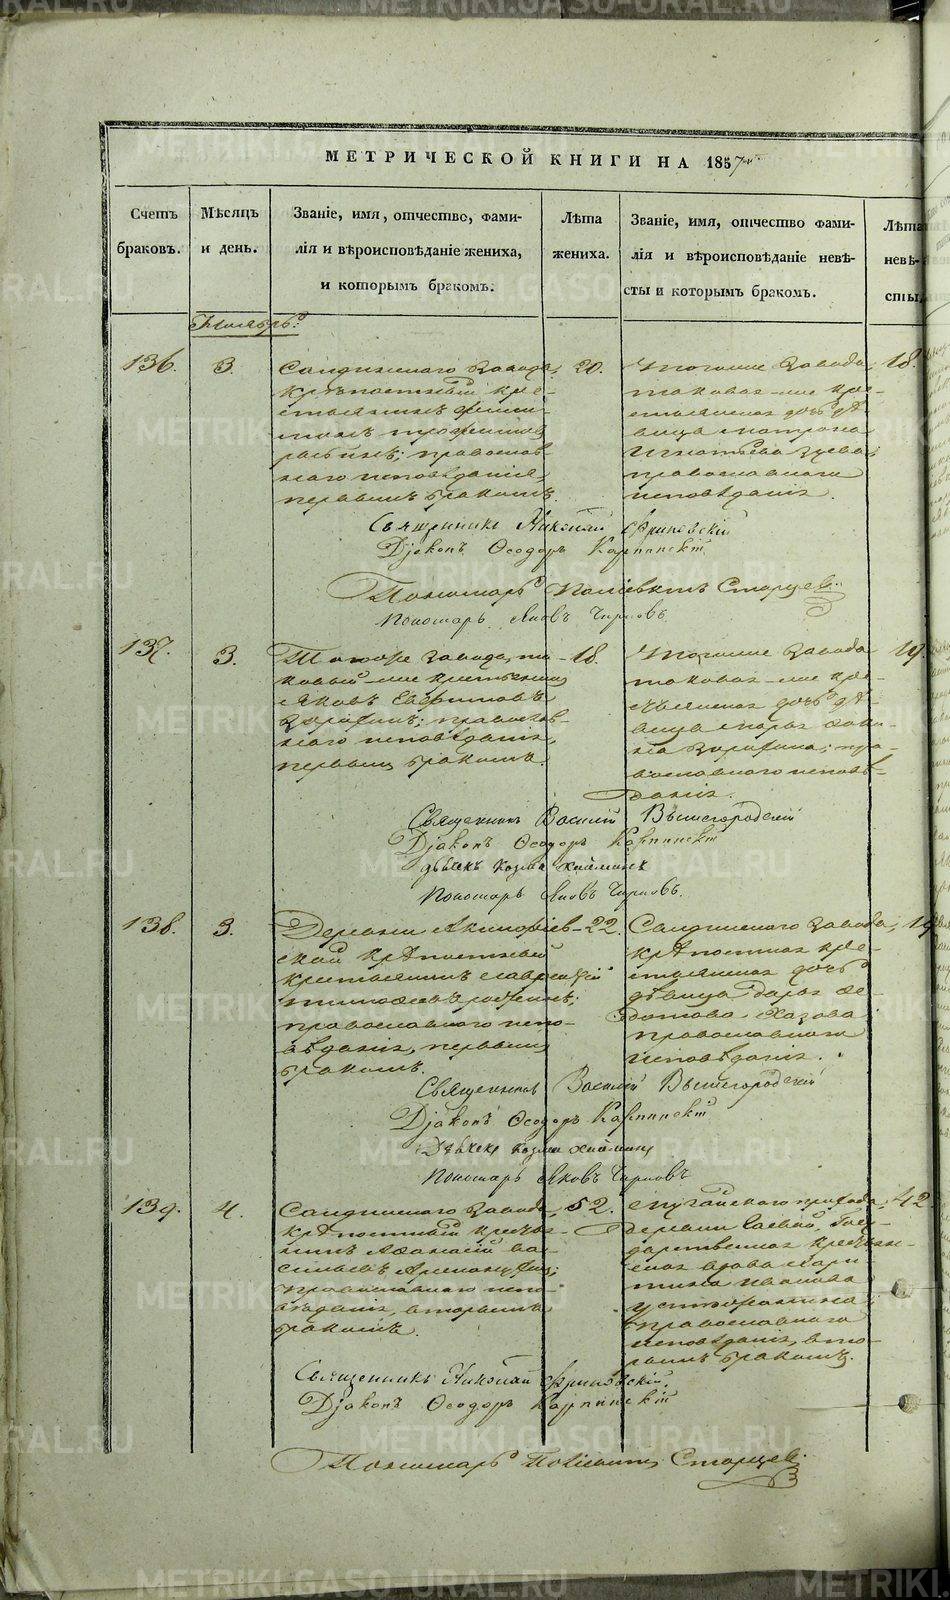 МЕТРИЧЕСКОЙ КНИГИ НА 1857
Счетъ браковъ.
Мѣсяцъ и день.
Званіе, имя, отчество, фами-
лія и вѣроисповѣданіе жениха,
и которымъ бракомъ.
Лѣта жениха.
Званіе, имя, отчество фами-
лія и вѣроисповѣданіе невѣ-
сты и которымъ бракомъ.
Лѣта невѣ-
сты.
Ноябрь.
136.
3.
Салдинскаго завода,
крѣпостный кре-
стьянинъ
православ-
наго исповѣданія,
первымъ бракомъ.
20.
Тогоже завода,
таковая-же кре-
стьянская дочь дѣ-
вица Матрона
Игнатьева Зуева;
православнаго
исповѣданія.
18.
Священникъ Николай
Діаконъ Ѳеодоръ Карпинскій
Пономарь Поліевктъ Старцевъ
Пономарь Яковъ Чирковъ.
137.
3.
Тогоже завода, та-
ковый-же крестьянинъ
Яковъ
православ-
наго исповѣданія,
первымъ бракомъ.
18.
Тогоже завода
таковая-же кре-
стьянская дочь дѣ-
вица Марья
пра-
вославнаго исповѣ-
данія.
19.
Священникъ Василій Вышегородскій
Діаконъ Ѳеодоръ Карпинскій
дьячекъ Козма
Пономарь Яковъ Чирковъ.
138.
3.
Деревни Акинфіев-
ской крѣпостный
крестьянинъ Лаврентій
православнаго испо-
вѣданія, первымъ
бракомъ.
22.
Салдинскаго завода,
крѣпостная кре-
стьянская дочь
дѣвица Дарья Ѳе-
дотова
православнаго
исповѣданія.
19
Священникъ Василій Вышегородскій
Діаконъ Ѳеодоръ Карпинскій
Дьячекъ Козма
Пономарь Яковъ Чирковъ
139.
4.
Салдинскаго завода,
крѣпостный крестья-
нинъ Аѳанасій Ва-
сильевъ
православнаго испо-
вѣданія, вторымъ
бракомъ.
52.
Мугайскаго прихода,
деревни Госу-
дарственная крестьян-
ская вдова Мари
Иванова
православнаго
исповѣданія, вто-
рымъ бракомъ.
42.
Священникъ Николай
Діаконъ Ѳеодоръ Карпинскій
Пономарь Поліевктъ Старцевъ.
METRIKI.GASO-URAL.RU